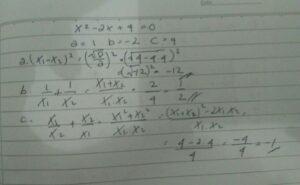 x²-2x+4=0
a=1 b=-2 c=4
a.(x₁-x₂)²=(√D/a)²=(√4-4.4)²
(√-12)²=-12
b. 1/x₁+1/x₂=x₁+x₂/x₁.x₂=2/4=1/2
c. x₁/x₂+x₂/x₁=x₁²+x₂²/x₁x₂=(x₁+x₂)²-2x₁x₂/x₁.x₂
=4-2.4/4=-4/4=-1